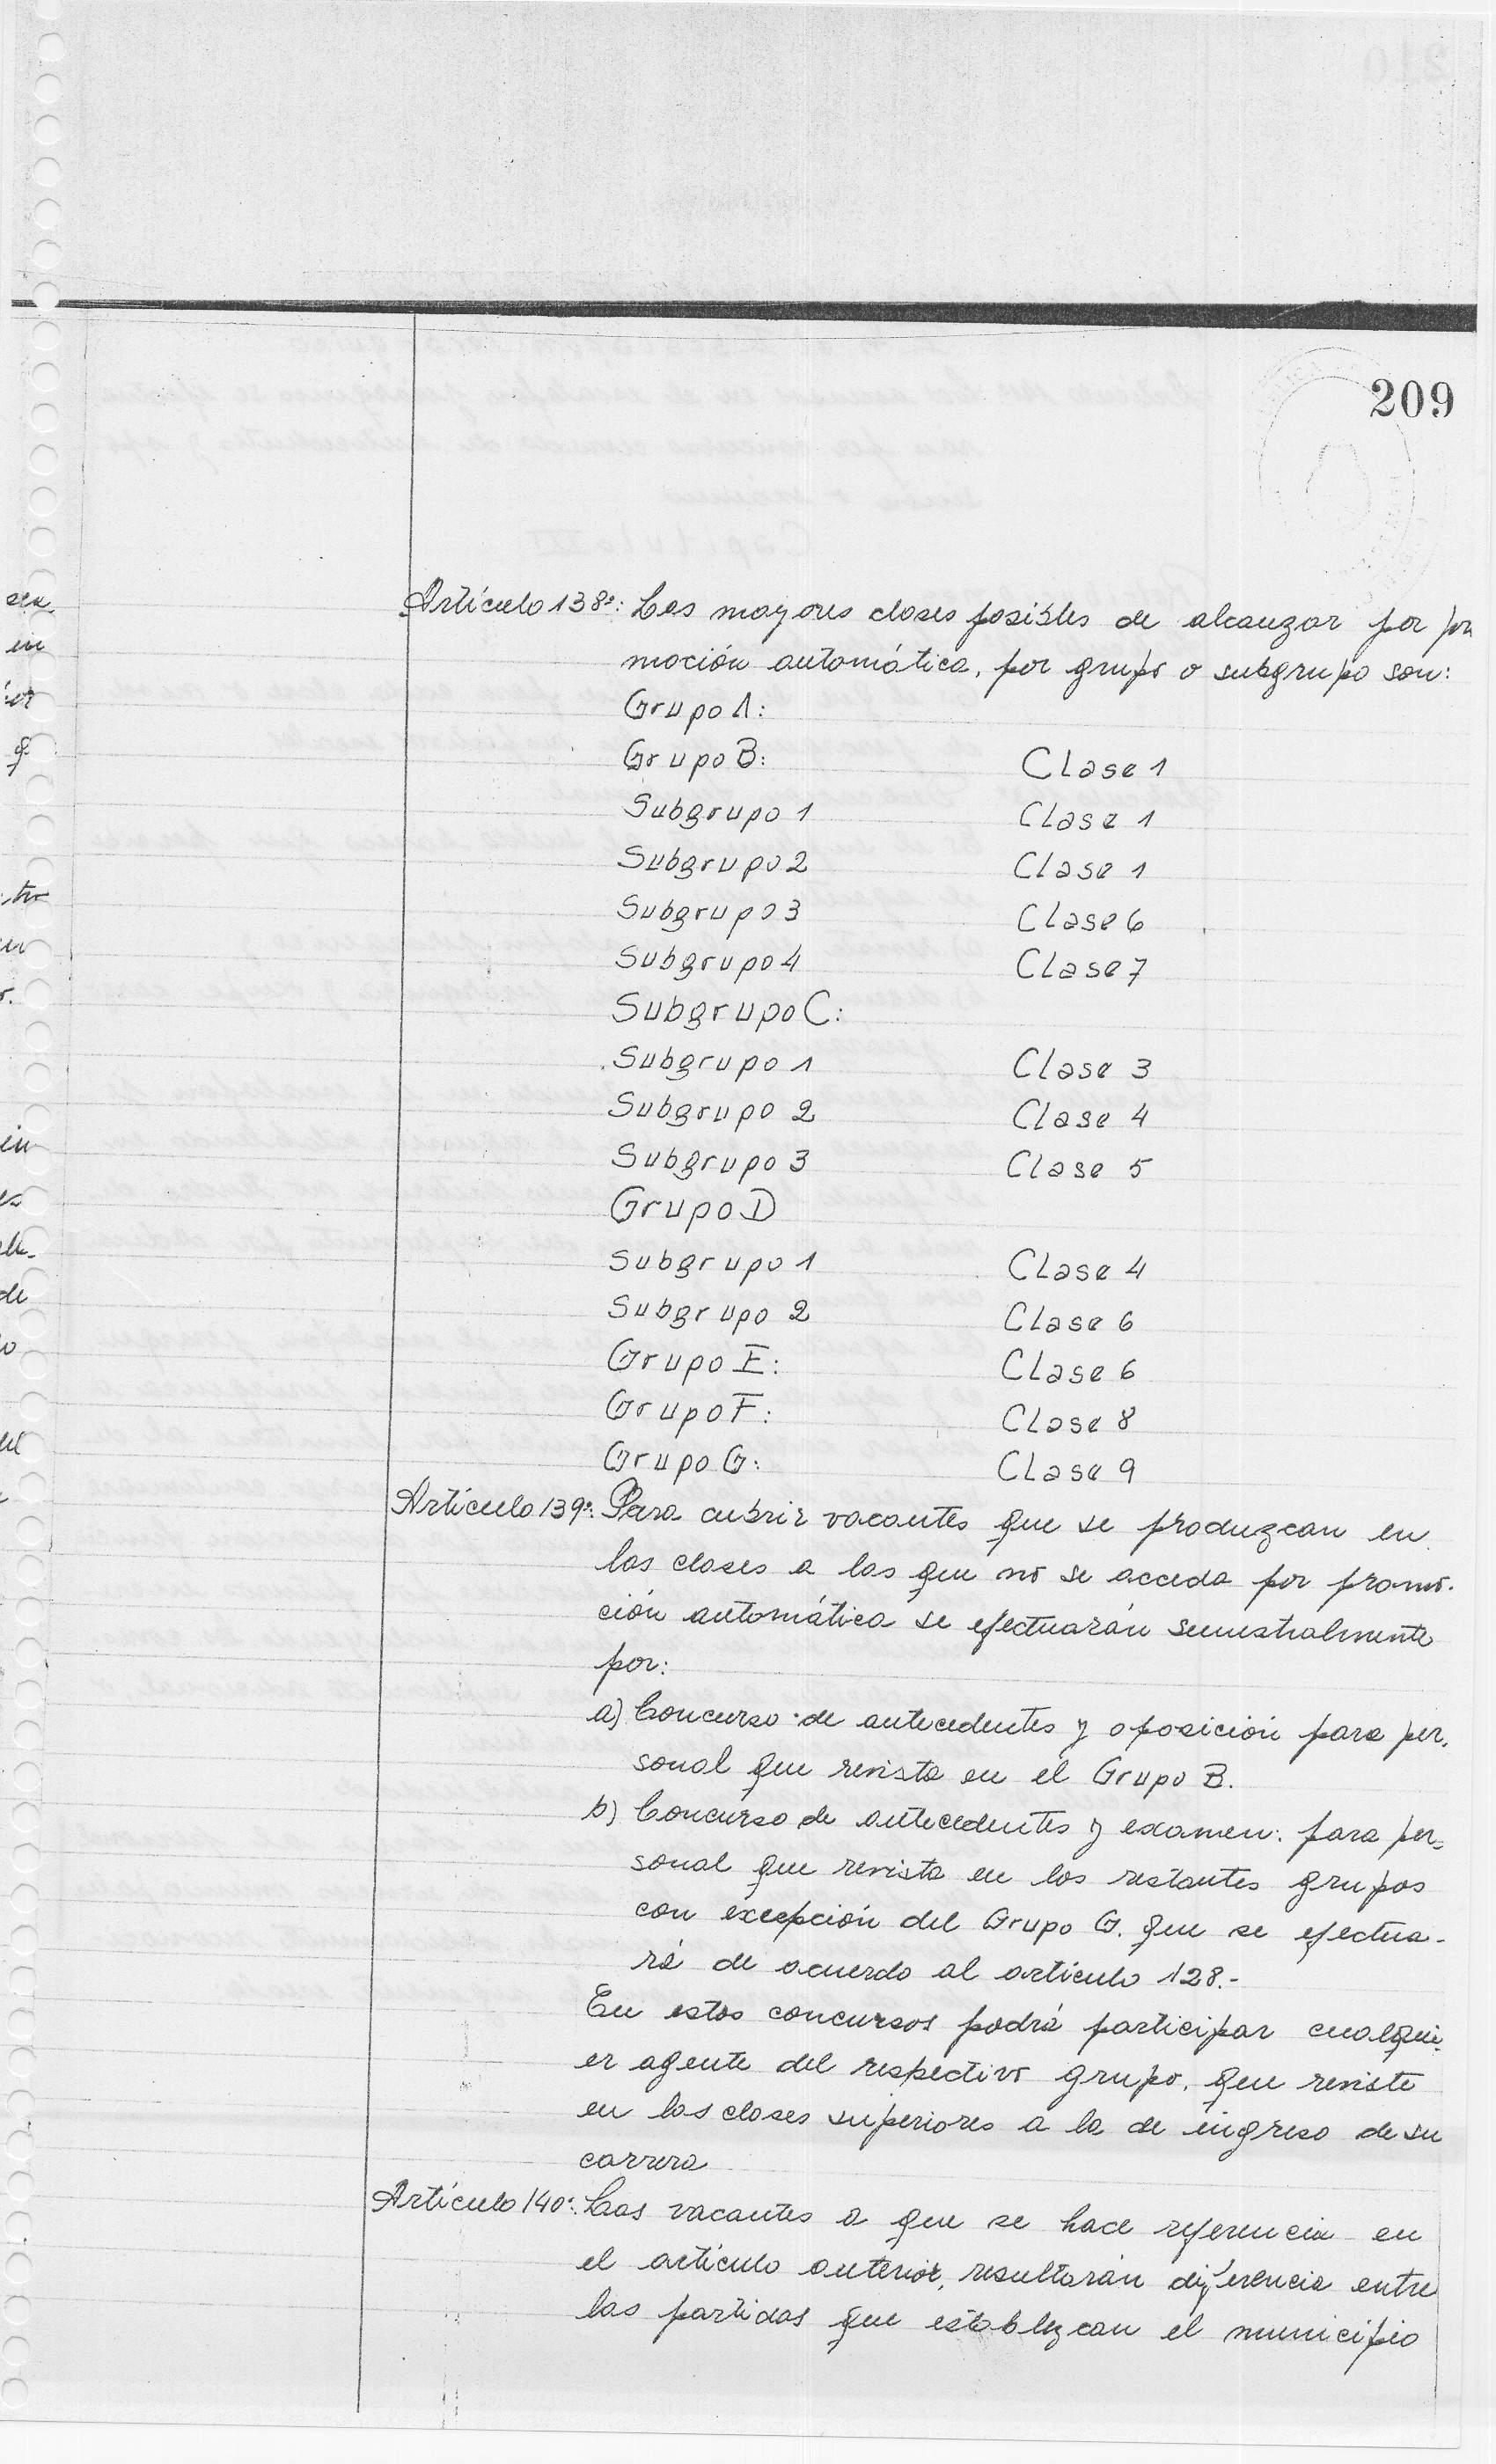 209
Artículo 138º: Las mayores clases posibles de alcanzar por pro
moción automática, por grupo o subgrupo son:
Grupo A:
Grupo B: Clase 1
Subgrupo 1 Clase 1
Subgrupo 2 Clase 1
Subgrupo 3 Clase 6
Subgrupo 4 Clase 7
Subgrupo C:
Subgrupo 1 Clase 3
Subgrupo 2 Clase 4
Subgrupo 3 Clase 5
Grupo D
Subgrupo 1 Clase 4
Subgrupo 2 Clase 6
Grupo E: Clase 6
Grupo F: Clase 8
Grupo G: Clase 9
Artículo 139º: Para cubrir vacantes que se produzcan en
las clases a las que no se acceda por promo-
ción automática se efectuarán semestralmente
por:
a) Concurso de antecedentes y oposición para per-
sonal que revista en el Grupo B.
b) Concurso de antecedentes y examen: para per=
sonal que revista en los restantes grupos
con excepción del Grupo G. que se efectua-
rá de acuerdo al artículo 128.-
En estos concursos podrá participar cualqui-
er agente del respectivo grupo, que reviste
en las clases superiores a la de ingreso de su
carrera
Artículo 140º: Las vacantes a que se hace referencia en
el artículo anterior, resultarán diferencia entre
las partidas que establezcan el municipio